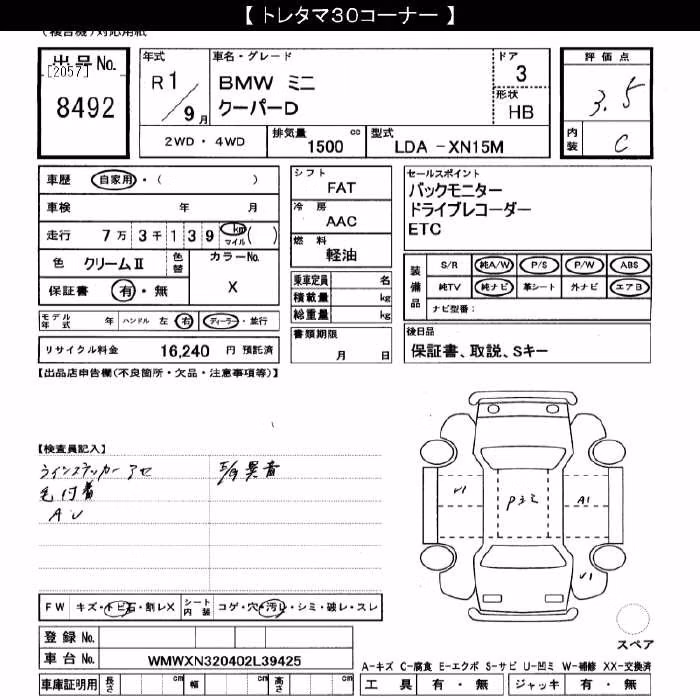 【 トレタマ30コーナー 】
(複合機)対応用紙
出品No.
[2057]
8492
年式
R 1 / 9 月
車名・グレード
BMW ミニ
クーパーD
ドア
3
形状
HB
評価点
3.5
内装
C
2WD・4WD
排気量 1500 cc
型式 LDA -XN15M
車歴 自家用・( )
車検 年 月
走行 7万 3千 1 3 9 km マイル ( )
色 クリームⅡ
色替
カラーNo.
X
保証書 有・無
モデル年式 年 ハンドル 左 右 ディーラー・並行
リサイクル料金 16,240 円 預託済
シフト
FAT
冷房
AAC
燃料
軽油
乗車定員 名
積載量 kg
総重量 kg
書類期限
月 日
セールスポイント
バックモニター
ドライブレコーダー
ETC
装備品
S/R 純A/W P/S P/W ABS
純TV 純ナビ 革シート 外ナビ エアB
ナビ型番:
後日品
保証書、取説、Sキー
【出品店申告欄(不良箇所・欠品・注意事項等)】
【検査員記入】
ラインステッカー アセ
毛付着
A U
異音
U1
P3ミ
A1
U1
FW キズ・トビ石・割レX
シート内装 コゲ・穴・汚レ・シミ・破レ・スレ
登録 No.
車台 No. WMWXN320402L39425
車庫証明用 長さ cm 幅 cm 高さ cm
スペア
A-キズ C-腐食 E-エクボ S-サビ U-凹ミ W-補修 XX-交換済
工具 有・無 ジャッキ 有・無